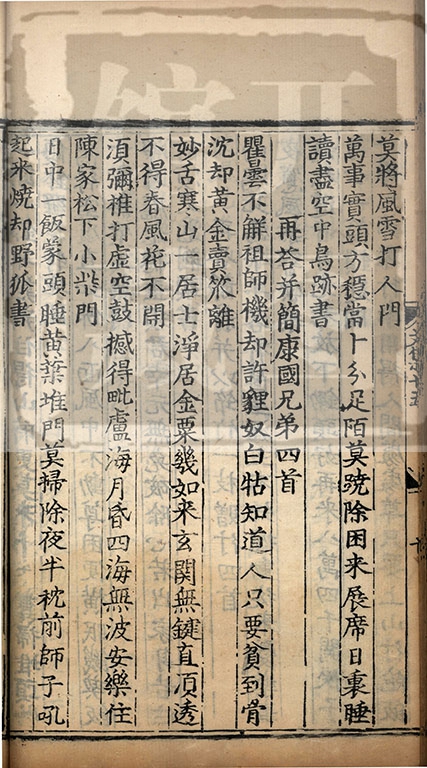 莫將風雪打人門
萬事實頭方穩當卜分足陌莫蹺除困来展席日裏睡
讀盡空中鳥跡書
再荅并簡康國兄弟四首
瞿曇不解祖師機却許貍奴白牯知道人只要貧到骨
沈却黄金賣笊籬
妙舌寒山一居士淨居金粟幾如来玄関無鍵直須透
不得春風花不開
須彌椎打虚空鼓撼得毗盧海月昏四海無波安樂住
陳家松下小柴門
日中一飯蒙頭睡黄葉堆門莫掃除夜半枕前師子吼
起来燒却野狐書